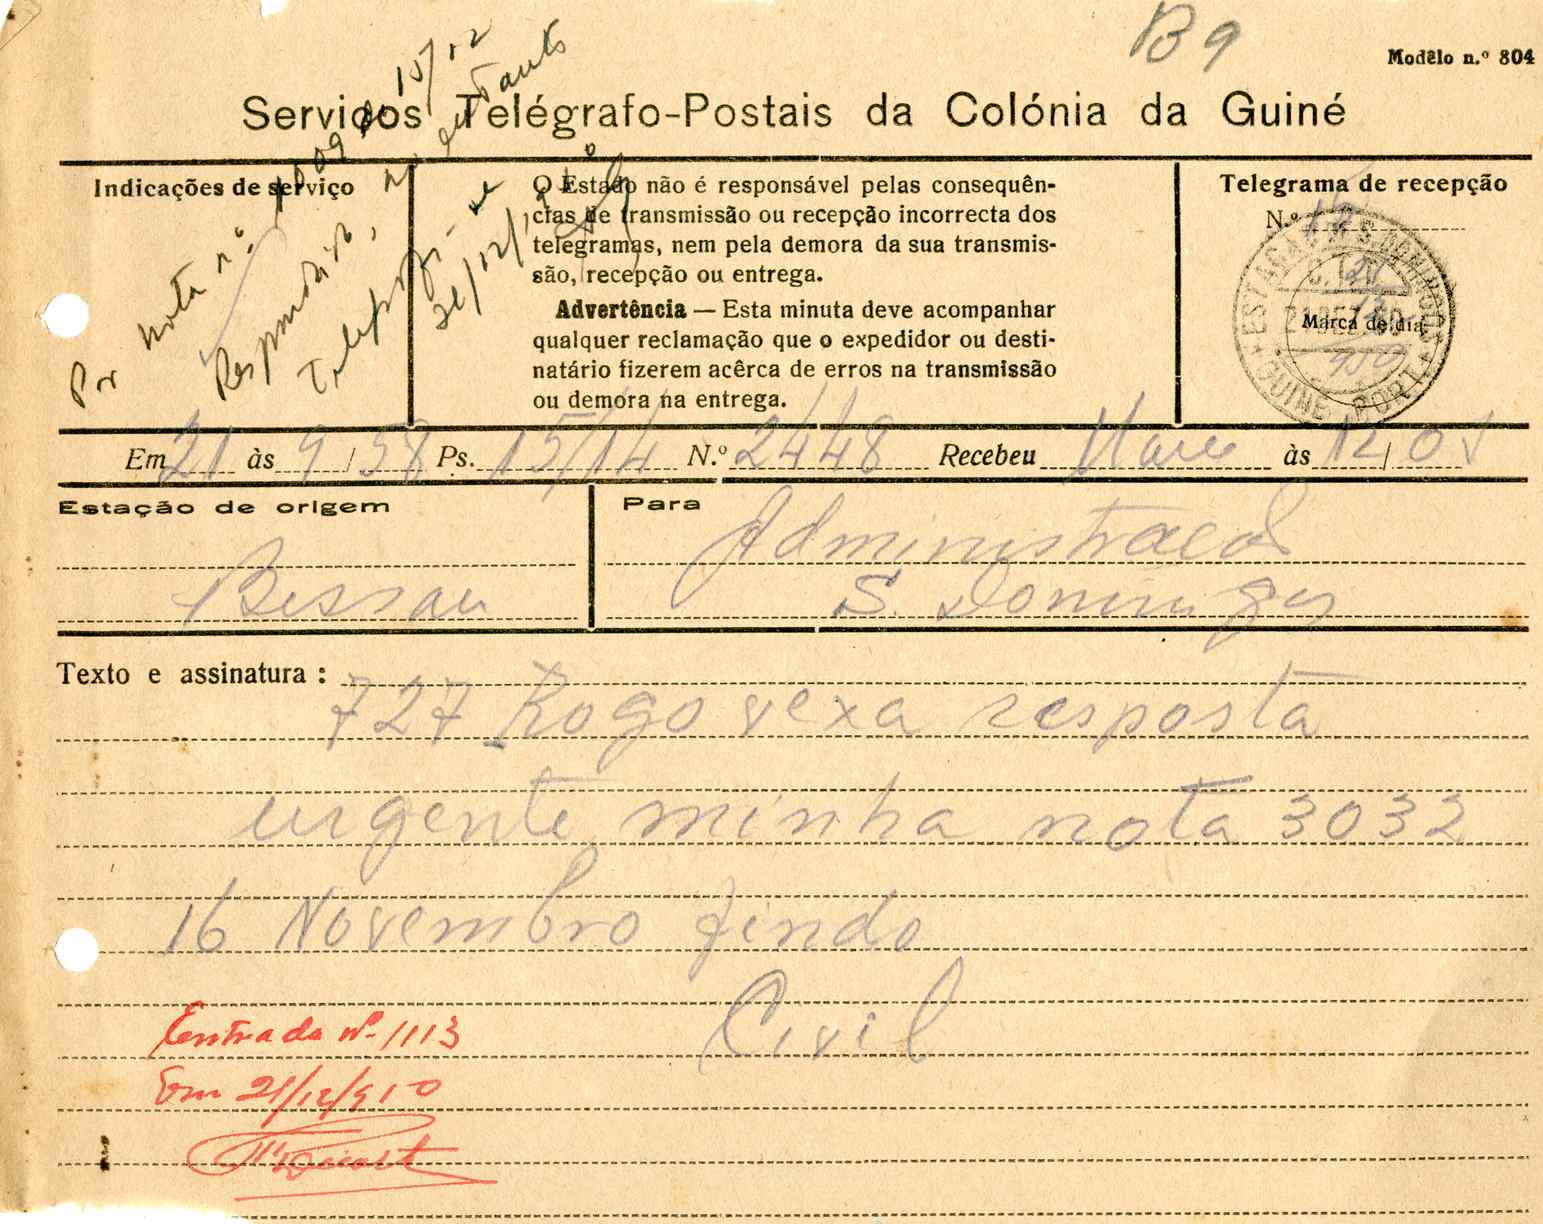 B 9
Modêlo n.º 804
Serviços Telégrafo-Postais da Colónia da Guiné
Indicações de serviço
Por nota n.º 1809 de 15/12
Respondido,
21/12/
O Estado não é responsável pelas consequên-
cias de transmissão ou recepção incorrecta dos
telegramas, nem pela demora da sua transmis-
são, recepção ou entrega.
Advertência — Esta minuta deve acompanhar
qualquer reclamação que o expedidor ou desti-
natário fizerem acêrca de erros na transmissão
ou demora na entrega.
Telegrama de recepção
N.º
Marca de dia
GUINÉ PORT.
Em 21 às 9/58 Ps. 15/14 N.º 2448 Recebeu às 12/01
Estação de origem
Bissau
Para
Administracao
S. Domingos
Texto e assinatura :
727 Rogo vexa resposta
urgente minha nota 3032
16 Novembro findo
Civil
Entrada nº 1113
Em 21/12/950